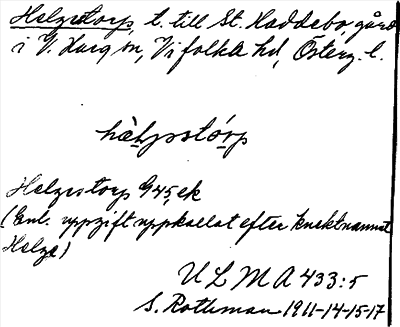 Helgestorp, t. till St. Haddebo, gård
i V. Harg sn, Vifolka hd, Österg. l.
Helgestorp G45 ek
(Enl. uppgift uppkallat efter knektnamnet
Helge)
ULMA 433:5
S. Rothman 1911-14-15-17